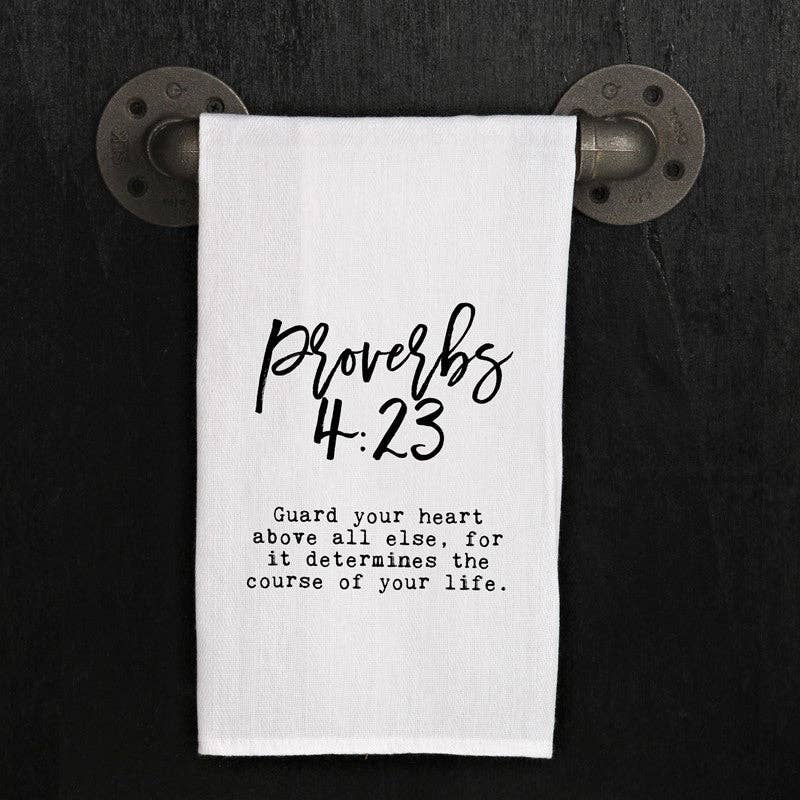 Proverbs
4:23
Guard your heart
above all else, for
it determines the
course of your life.